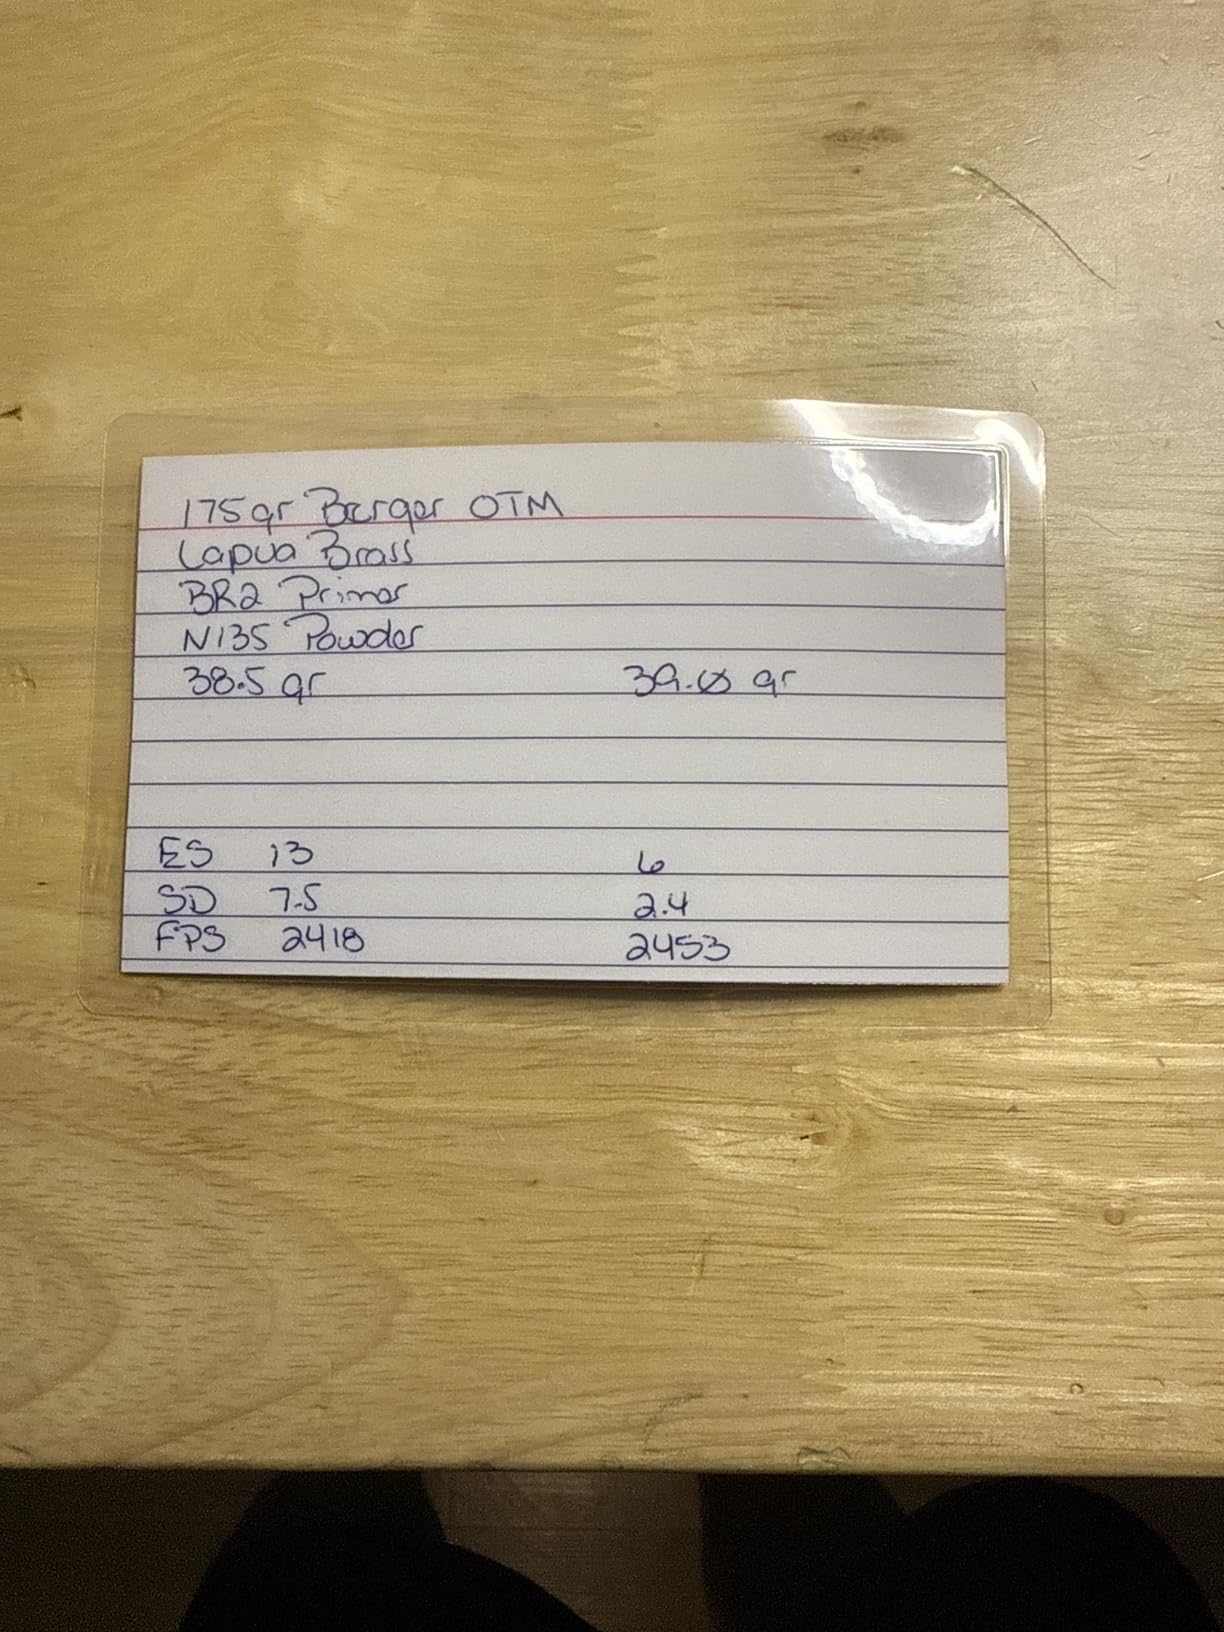 175gr Berger OTM
Lapua Brass
BR2 Primer
N135 Powder
38.5 gr 39.0 gr
ES 13 6
SD 7.5 2.4
FPS 2418 2453